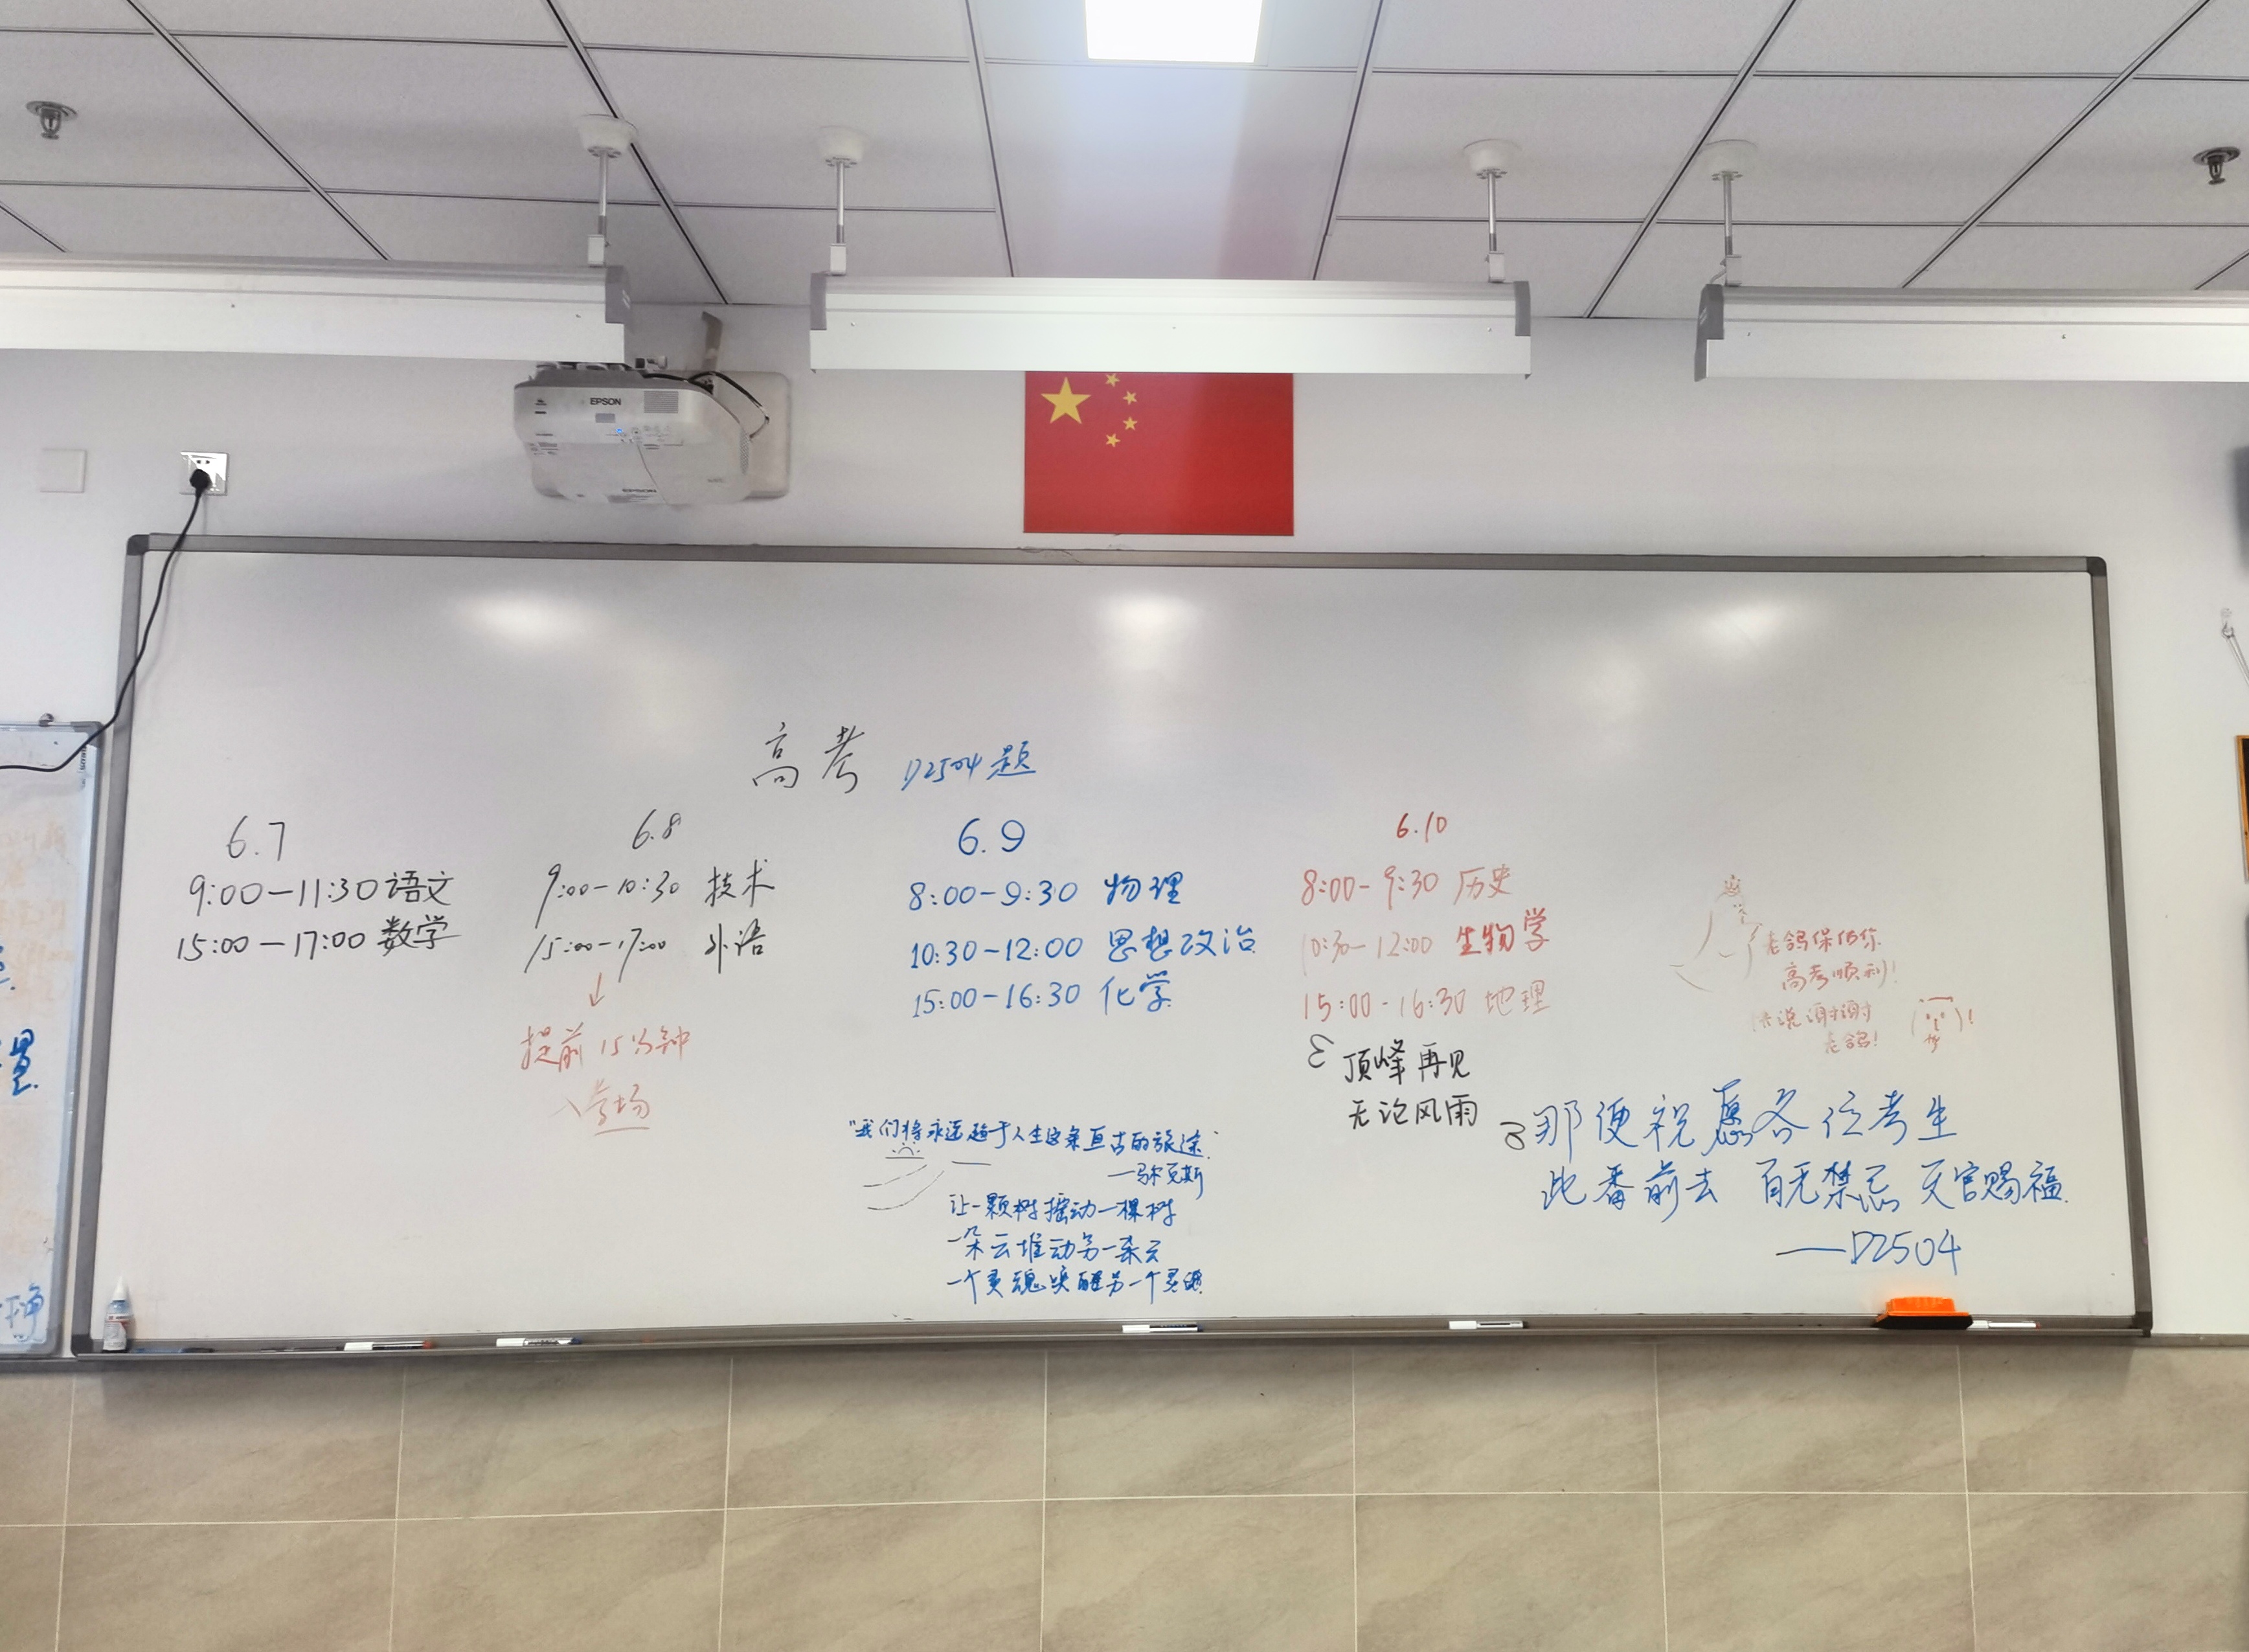 EPSON
EPSON
高考 D2504题
6.7
9:00-11:30 语文
15:00-17:00 数学
6.8
9:00-10:30 技术
15:00-17:00 外语
提前15分钟
入考场
6.9
8:00-9:30 物理
10:30-12:00 思想政治
15:00-16:30 化学
6.10
8:00-9:30 历史
10:30-12:00 生物学
15:00-16:30 地理
顶峰再见
无论风雨
老鸽保佑你
高考顺利!
快说谢谢
老鸽!
“我们将永远趋于人生这条亘古的旅途”
—马尔克斯
让一颗树摇动一棵树
一朵云推动另一朵云
一个灵魂唤醒另一个灵魂
那便祝愿各位考生
此番前去 百无禁忌 天官赐福
——D2504